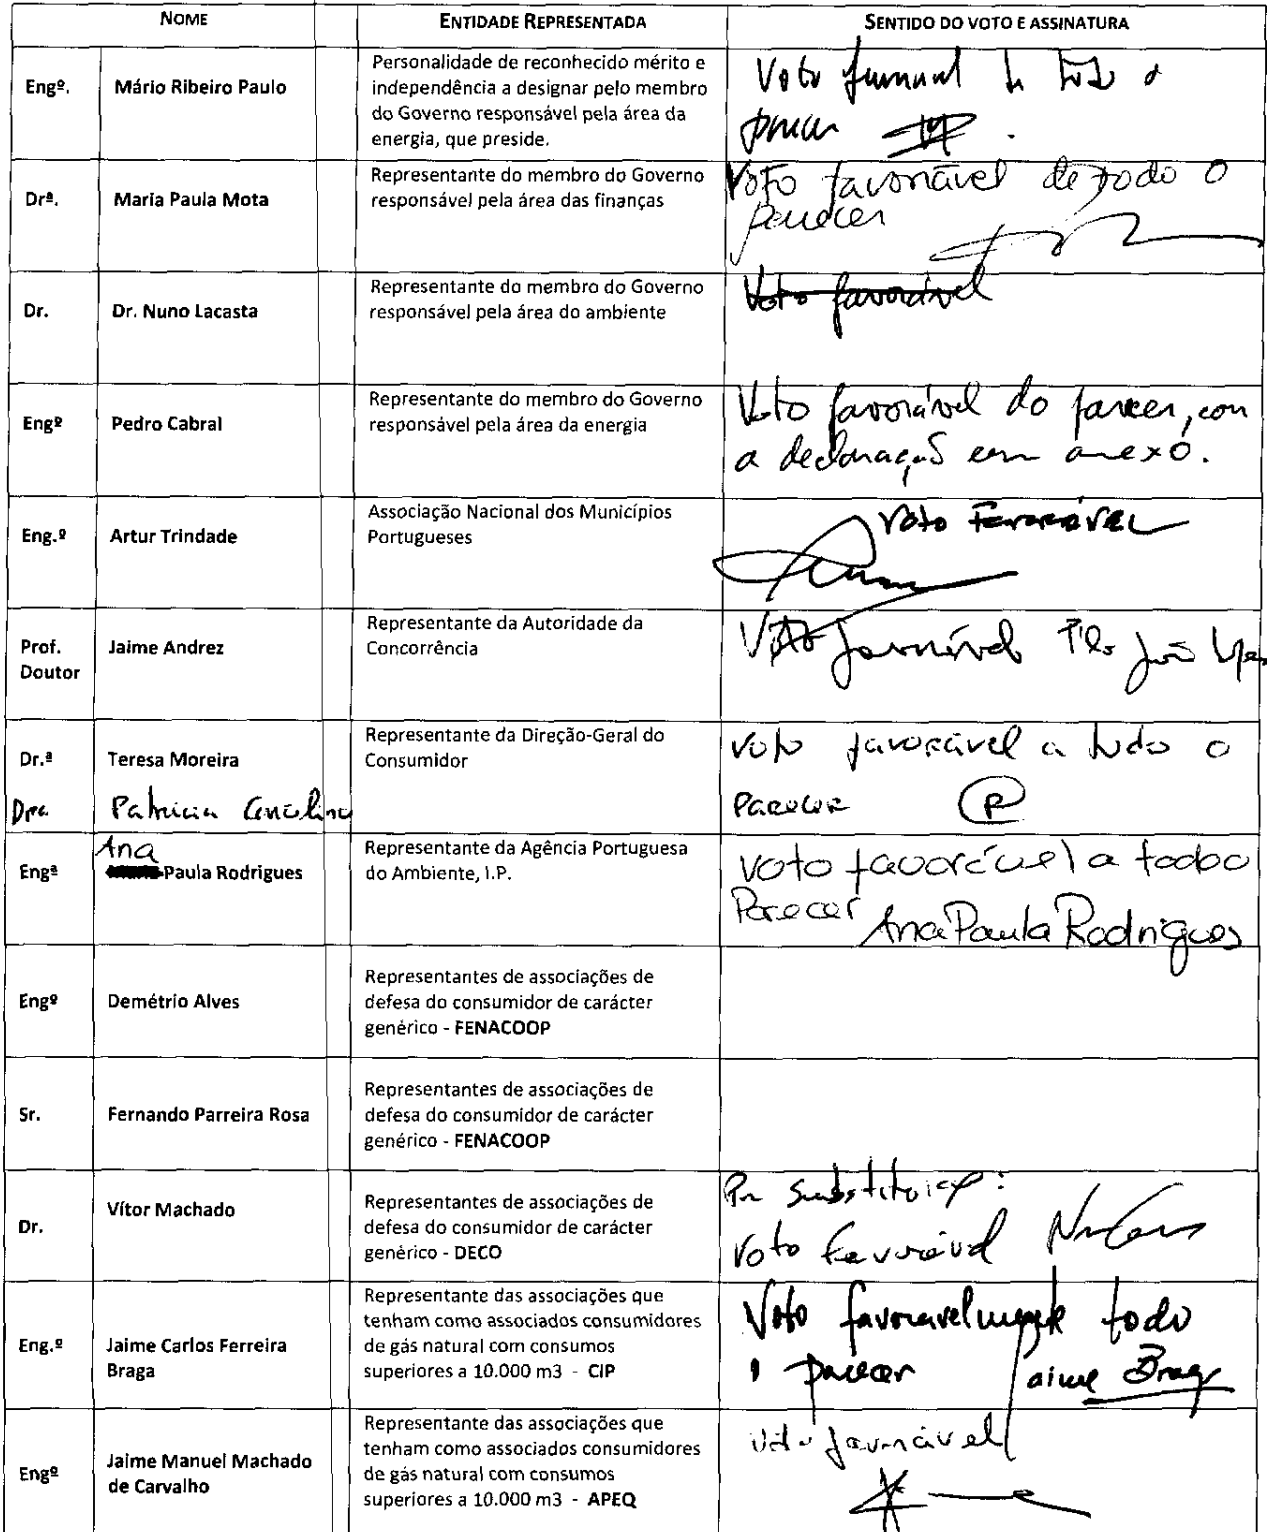 NOME ENTIDADE REPRESENTADA SENTIDO DO VOTO E ASSINATURA
Engº. Mário Ribeiro Paulo
Personalidade de reconhecido mérito e
independência a designar pelo membro
do Governo responsável pela área da
energia, que preside.
Voto
Drª. Maria Paula Mota
Representante do membro do Governo
responsável pela área das finanças
Voto favorável de todo o
parecer
Dr. Dr. Nuno Lacasta
Representante do membro do Governo
responsável pela área do ambiente
Voto favorável
Engº Pedro Cabral
Representante do membro do Governo
responsável pela área da energia
Voto favorável do parecer, com
a declaração em anexo.
Eng.º Artur Trindade
Associação Nacional dos Municípios
Portugueses
Voto Favorável
Prof.
Doutor
Jaime Andrez
Representante da Autoridade da
Concorrência
Voto favorável
Dr.ª Teresa Moreira
Representante da Direção-Geral do
Consumidor
Voto favorável a todo o
Parecer
Dra. Patrícia
Ana
Engª Paula Rodrigues
Representante da Agência Portuguesa
do Ambiente, I.P.
Voto favorável a todo o
Parecer Ana Paula Rodrigues
Engº Demétrio Alves
Representantes de associações de
defesa do consumidor de carácter
genérico - FENACOOP
Sr. Fernando Parreira Rosa
Representantes de associações de
defesa do consumidor de carácter
genérico - FENACOOP
Dr. Vítor Machado
Representantes de associações de
defesa do consumidor de carácter
genérico - DECO
Voto favorável
Eng.º Jaime Carlos Ferreira
Braga
Representante das associações que
tenham como associados consumidores
de gás natural com consumos
superiores a 10.000 m3 - CIP
Voto favoravelmente todo
o parecer Jaime Braga
Engº Jaime Manuel Machado
de Carvalho
Representante das associações que
tenham como associados consumidores
de gás natural com consumos
superiores a 10.000 m3 - APEQ
Voto favorável